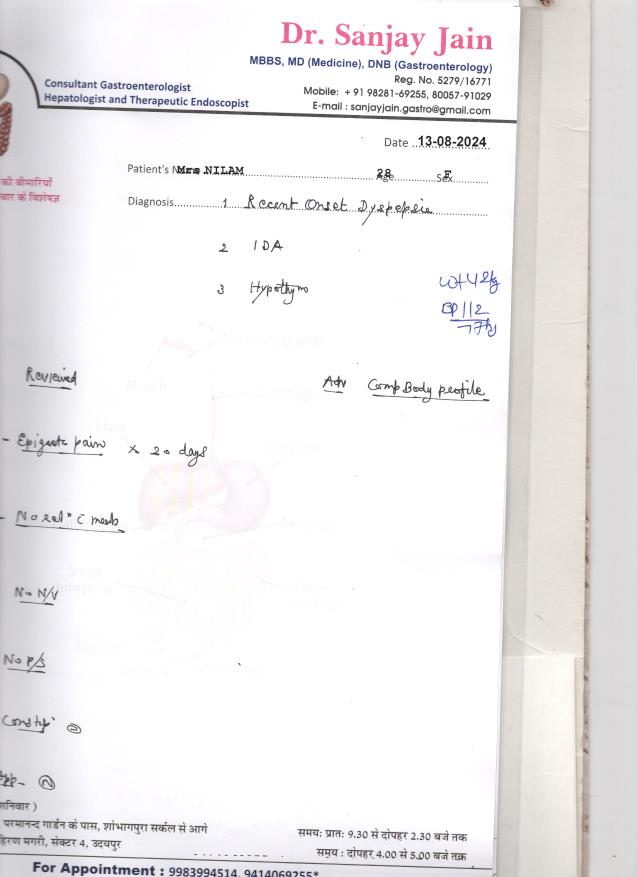 Dr. Sanjay Jain
MBBS, MD (Medicine), DNB (Gastroenterology)
Reg. No. 5279/16771
Mobile: + 91 98281-69255, 80057-91029
E-mail : sanjayjain.gastro@gmail.com
Consultant Gastroenterologist
Hepatologist and Therapeutic Endoscopist
की बीमारियों
चार के विशेषज्ञ
Date 13-08-2024
Patient's Mrs NILAM 28 Age F Sex
Diagnosis 1 Recent Onset Dyspepsia
2 IDA
3 Hypothyro
Wt 42kg
BP 112
77
Salivary glands
Reviewed
Adv Comp Body profile
Mouth
Esophagus
Liver
- Epigastr pain x 20 days
Stomach
- No rel" c meals
Pancreas
Small
intestine
Large
intestine
No N/V
No P/S
Constip
App- N
शनिवार )
परमानन्द गार्डन के पास, शोभागपुरा सर्कल से आगे
हिरण मगरी, सेक्टर 4, उदयपुर
समय: प्रात: 9.30 से दोपहर 2.30 बजे तक
समय : दोपहर 4.00 से 5.00 बजे तक
For Appointment : 9983994514, 9414069255*